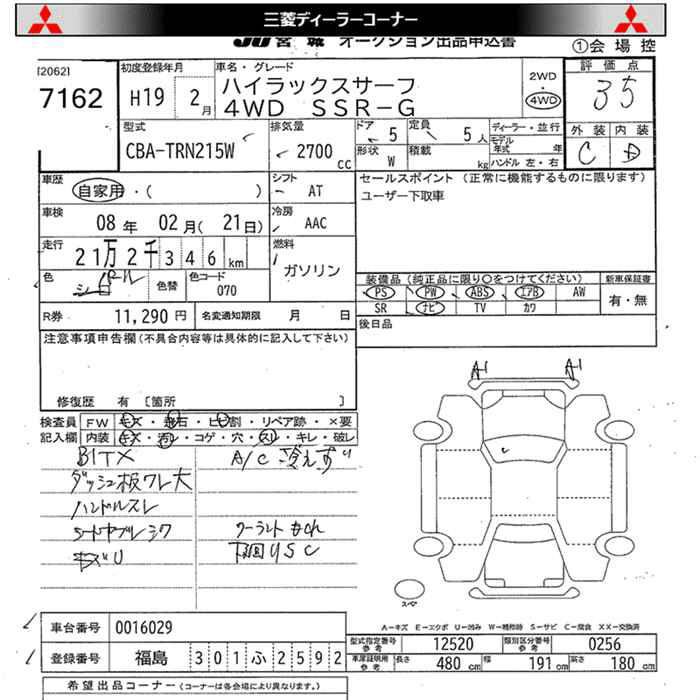 三菱ディーラーコーナー
JU宮城 オークション出品申込書
①会場控
[2062]
7162
初度登録年月
H19 2月
車名・グレード
ハイラックスサーフ
4WD SSR-G
2WD
・
4WD
評価点
3.5
外装 内装
C D
型式
CBA-TRN215W
排気量
2700 cc
ドア 5
定員 5人
形状 W
積載 kg
ディーラー・並行
モデル年式 年
ハンドル 左・右
車歴
自家用・( )
シフト
AT
車検
08年 02月(21日)
冷房
AAC
走行
21万2千346km
燃料
ガソリン
色
パール
色替
色コード
070
R券 11,290円
名変通知期限 月 日
セールスポイント (正常に機能するものに限ります)
ユーザー下取車
装備品(純正品に限り○をつけてください)
新車保証書
PS PW ABS エアB AW
SR ナビ TV カワ
有・無
後日品
注意事項申告欄(不具合内容等は具体的に記入して下さい)
修復歴 有 〔箇所 〕
検査員記入欄
FW キズ・飛石・ヒビ割・リペア跡・×要
内装 キズ・汚レ・コゲ・穴・スレ・キレ・破レ
A/C冷えず
ダッシュ板ワレ大
ハンドルスレ
クーラントもれ
下回りSC
A1 A1
スペア
A-キズ E-エクボ U-凹み W-補修跡 S-サビ C-腐食 XX-交換済
車台番号 0016029
登録番号 福島 301ふ2592
型式指定番号 参考 12520
類別区分番号 参考 0256
車庫証明用 参考 長さ 480cm 幅 191cm 高さ 180cm
希望出品コーナー(コーナーは各会場により異なります。)